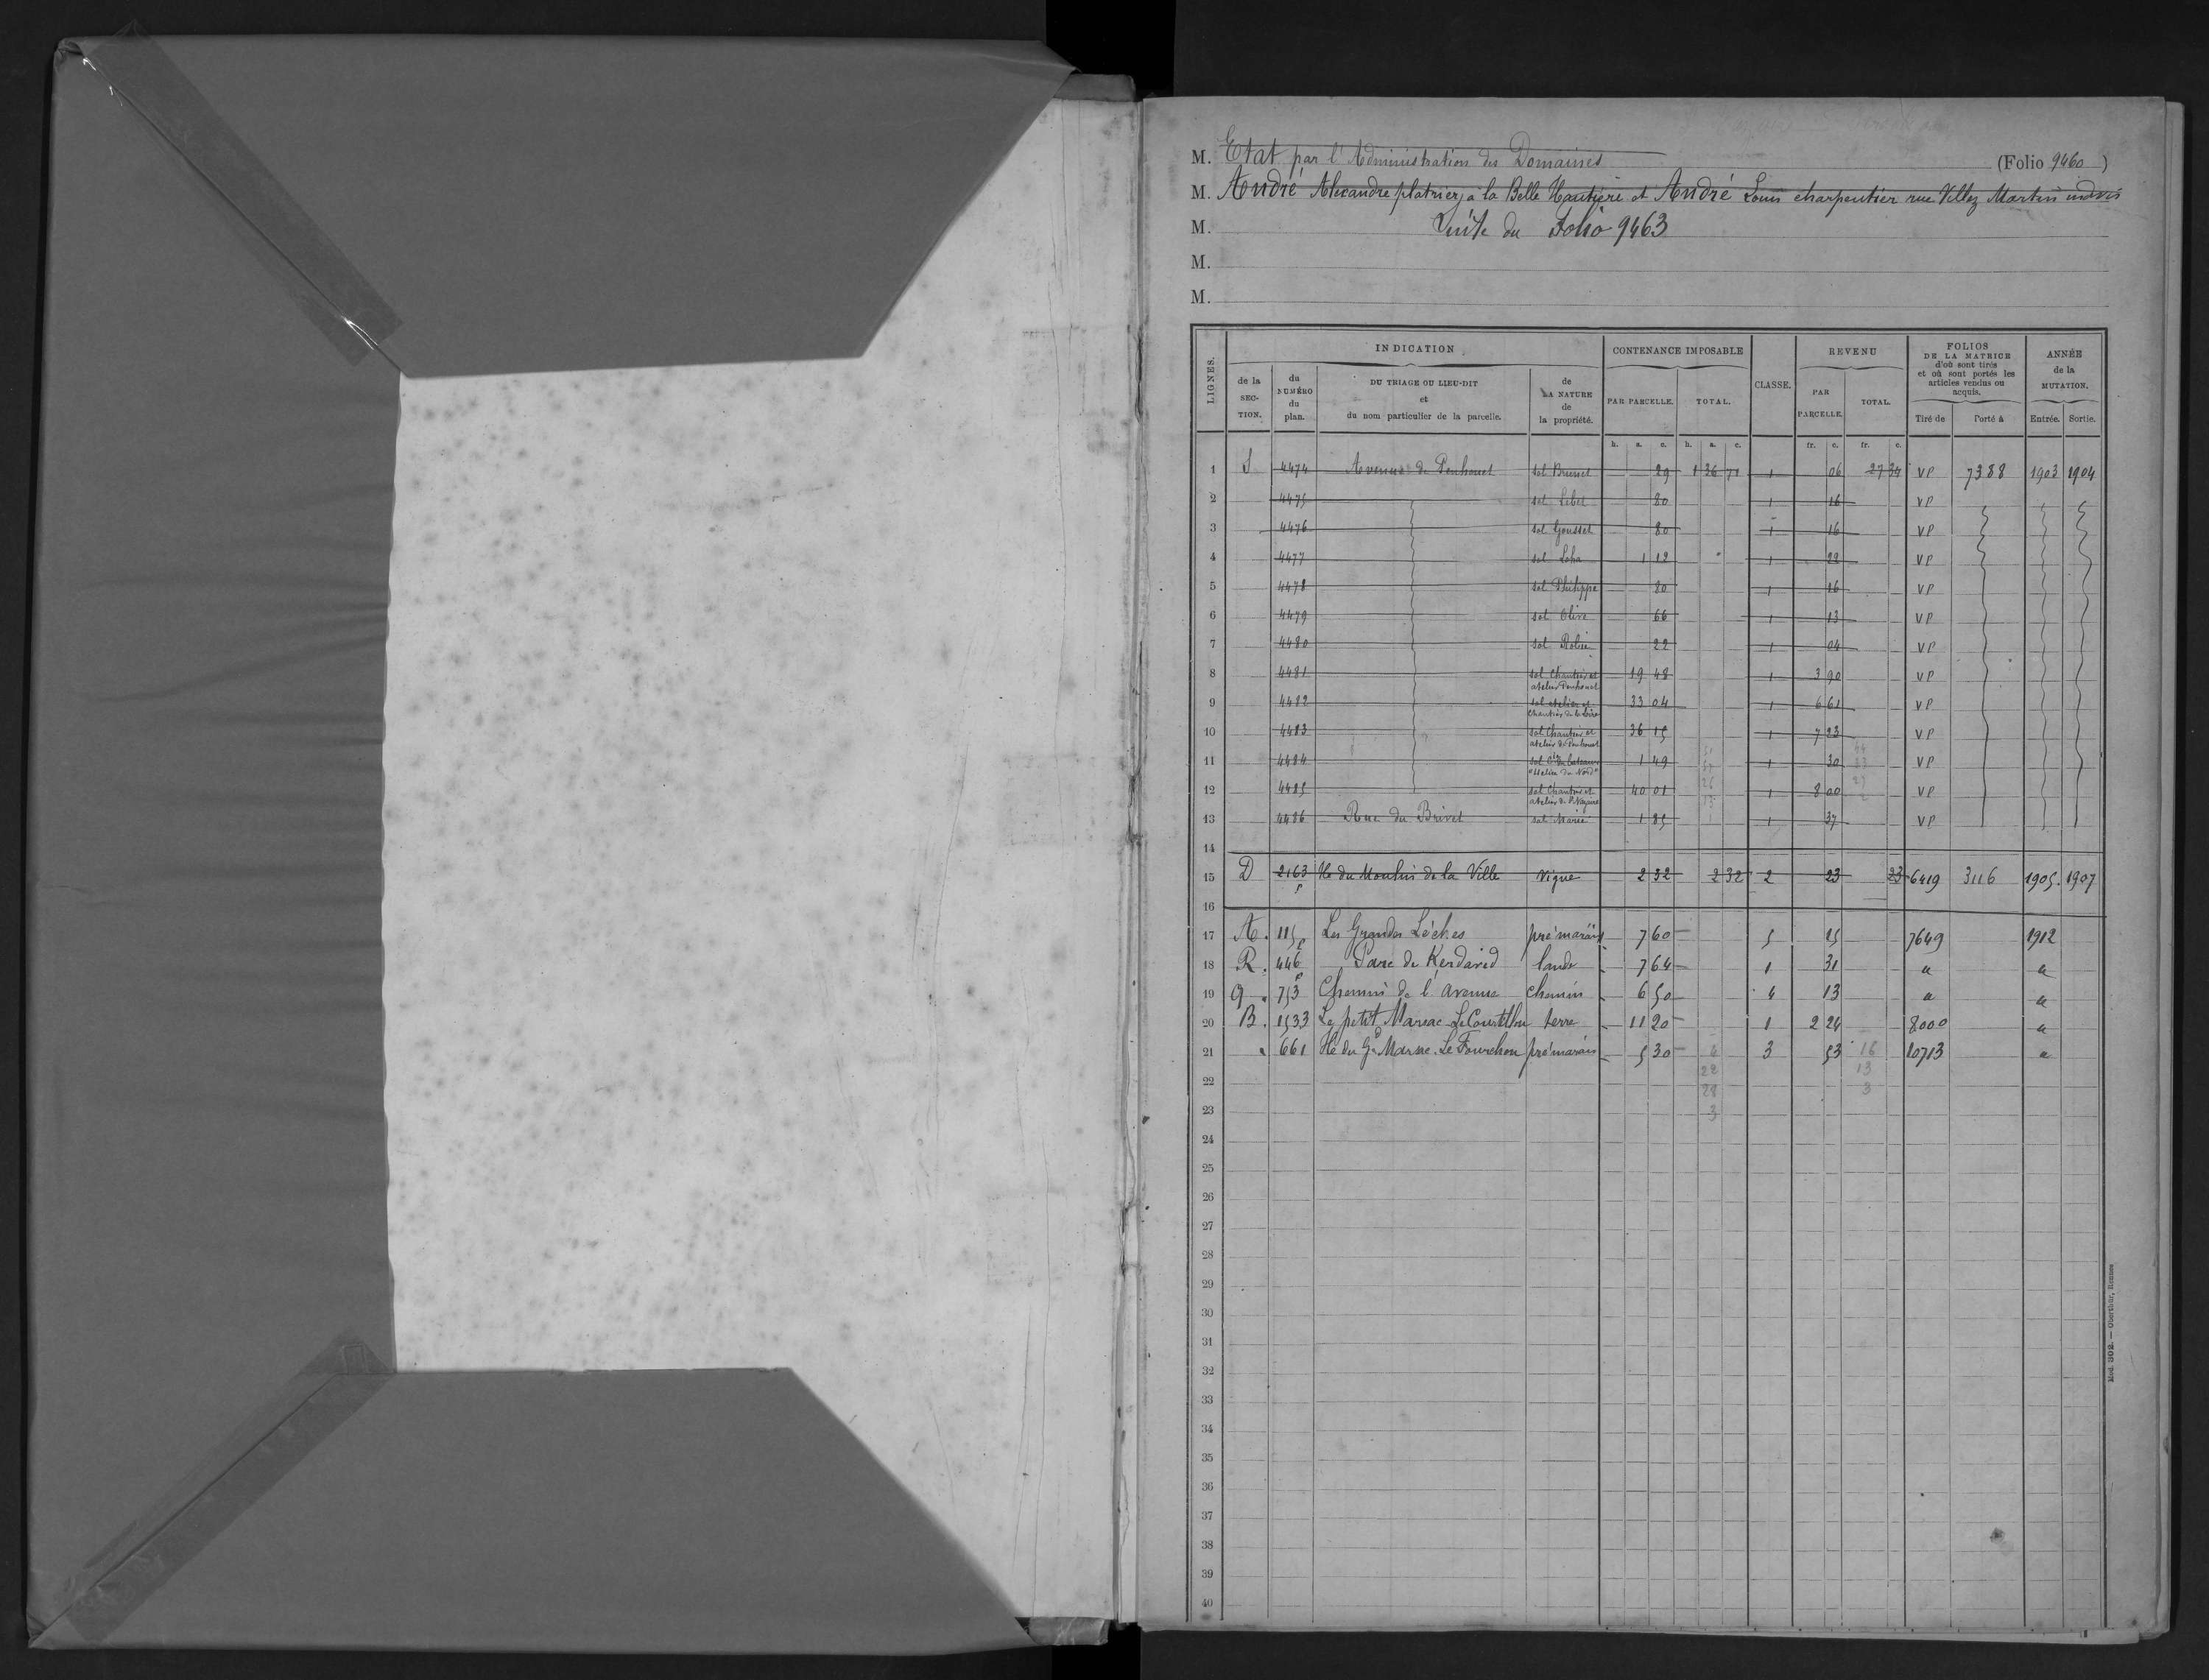 M. Etat par l'Administration des Domaines (Folio 9460)
M. André Alexandre platrier, à la Belle Hautière et André Louis charpentier rue Villez Martin indivis
M. Suite du Folio 9463
M.
M.
LIGNES. INDICATION CONTENANCE IMPOSABLE CLASSE. REVENU FOLIOS DE LA MATRICE d'où sont tirés et où sont portés les articles vendus ou acquis. ANNÉE de la MUTATION.
de la SECTION. du NUMÉRO du plan. DU TRIAGE OU LIEU-DIT et du nom particulier de la parcelle. de LA NATURE de la propriété. PAR PARCELLE. TOTAL. PAR PARCELLE. TOTAL. Tiré de Porté à Entrée. Sortie.
h. a. c. h. a. c. fr. c. fr. c.
1 S 4474 Avenue de Penhouet sol Brunet 29 1 36 71 1 06 27 34 VP 7388 1903 1904
2 4475 sol Lebel 80 1 16 VP
3 4476 sol Gousset 80 1 16 VP
4 4477 sol 1 12 1 22 VP
5 4478 sol Philippe 80 1 16 VP
6 4479 sol Olive 66 1 13 VP
7 4480 sol 22 1 04 VP
8 4481 sol Chantier et atelier Penhouet 19 48 1 3 90 VP
9 4482 sol atelier et chantier de la Loire 33 04 1 6 61 VP
10 4483 sol Chantier et atelier de Penhouet 36 15 1 7 23 VP
11 4484 sol 1 49 1 30 VP
12 4485 sol Chantier et atelier de St Nazaire 40 01 1 8 00 VP
13 4486 Rue du Brivet sol Marie 1 85 1 37 VP
14
15 D 2163 p He du Moulin de la Ville vigne 2 32 2 32 2 23 23 6419 3116 1905. 1907
16
17 A. 115 p Les Grandes Lèches pré marais 7 60 5 15 7649 1912
18 R. 446 p Parc de Kerdavid lande 7 64 1 31 " "
19 G. 753 Chemin de l'avenue chemin 6 50 4 13 " "
20 B. 1533 Le petit Marsac Le Courtillon terre 11 20 1 2 24 8000 "
21 " 661 He du Gd Marsac. Le Fourchon pré marais 5 30 3 53 10713 "
22
23
24
25
26
27
28
29
30
31
32
33
34
35
36
37
38
39
40
Mod. 302. — Oberthür, Rennes